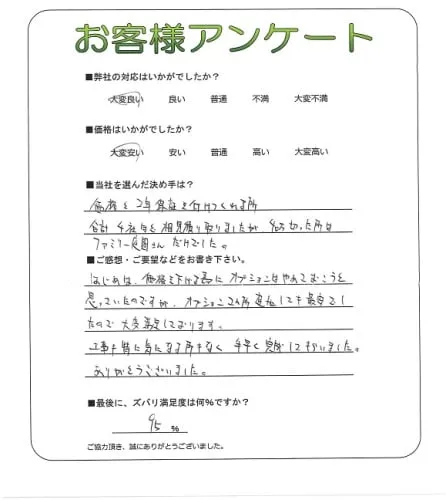 お客様アンケート
■弊社の対応はいかがでしたか?
大変良い 良い 普通 不満 大変不満
■価格はいかがでしたか?
大変安い 安い 普通 高い 大変高い
■当社を選んだ決め手は?
価格と2年保証を付けてくれる所
合計4社与を相見積り取りましたが
ファミリー庭園さんだけでした。
■ご感想・ご要望などをお書き下さい。
はじめは、価格を下げる為にオプションはやめておこうと
思っていたのですが、オプション2ヶ所追加しても最安でし
たので大変満足しております。
工事も特に気になる所もなく手早く完成して下さいました。
ありがとうございました。
■最後に、ズバリ満足度は何%ですか?
95 %
ご協力頂き、誠にありがとうございました。